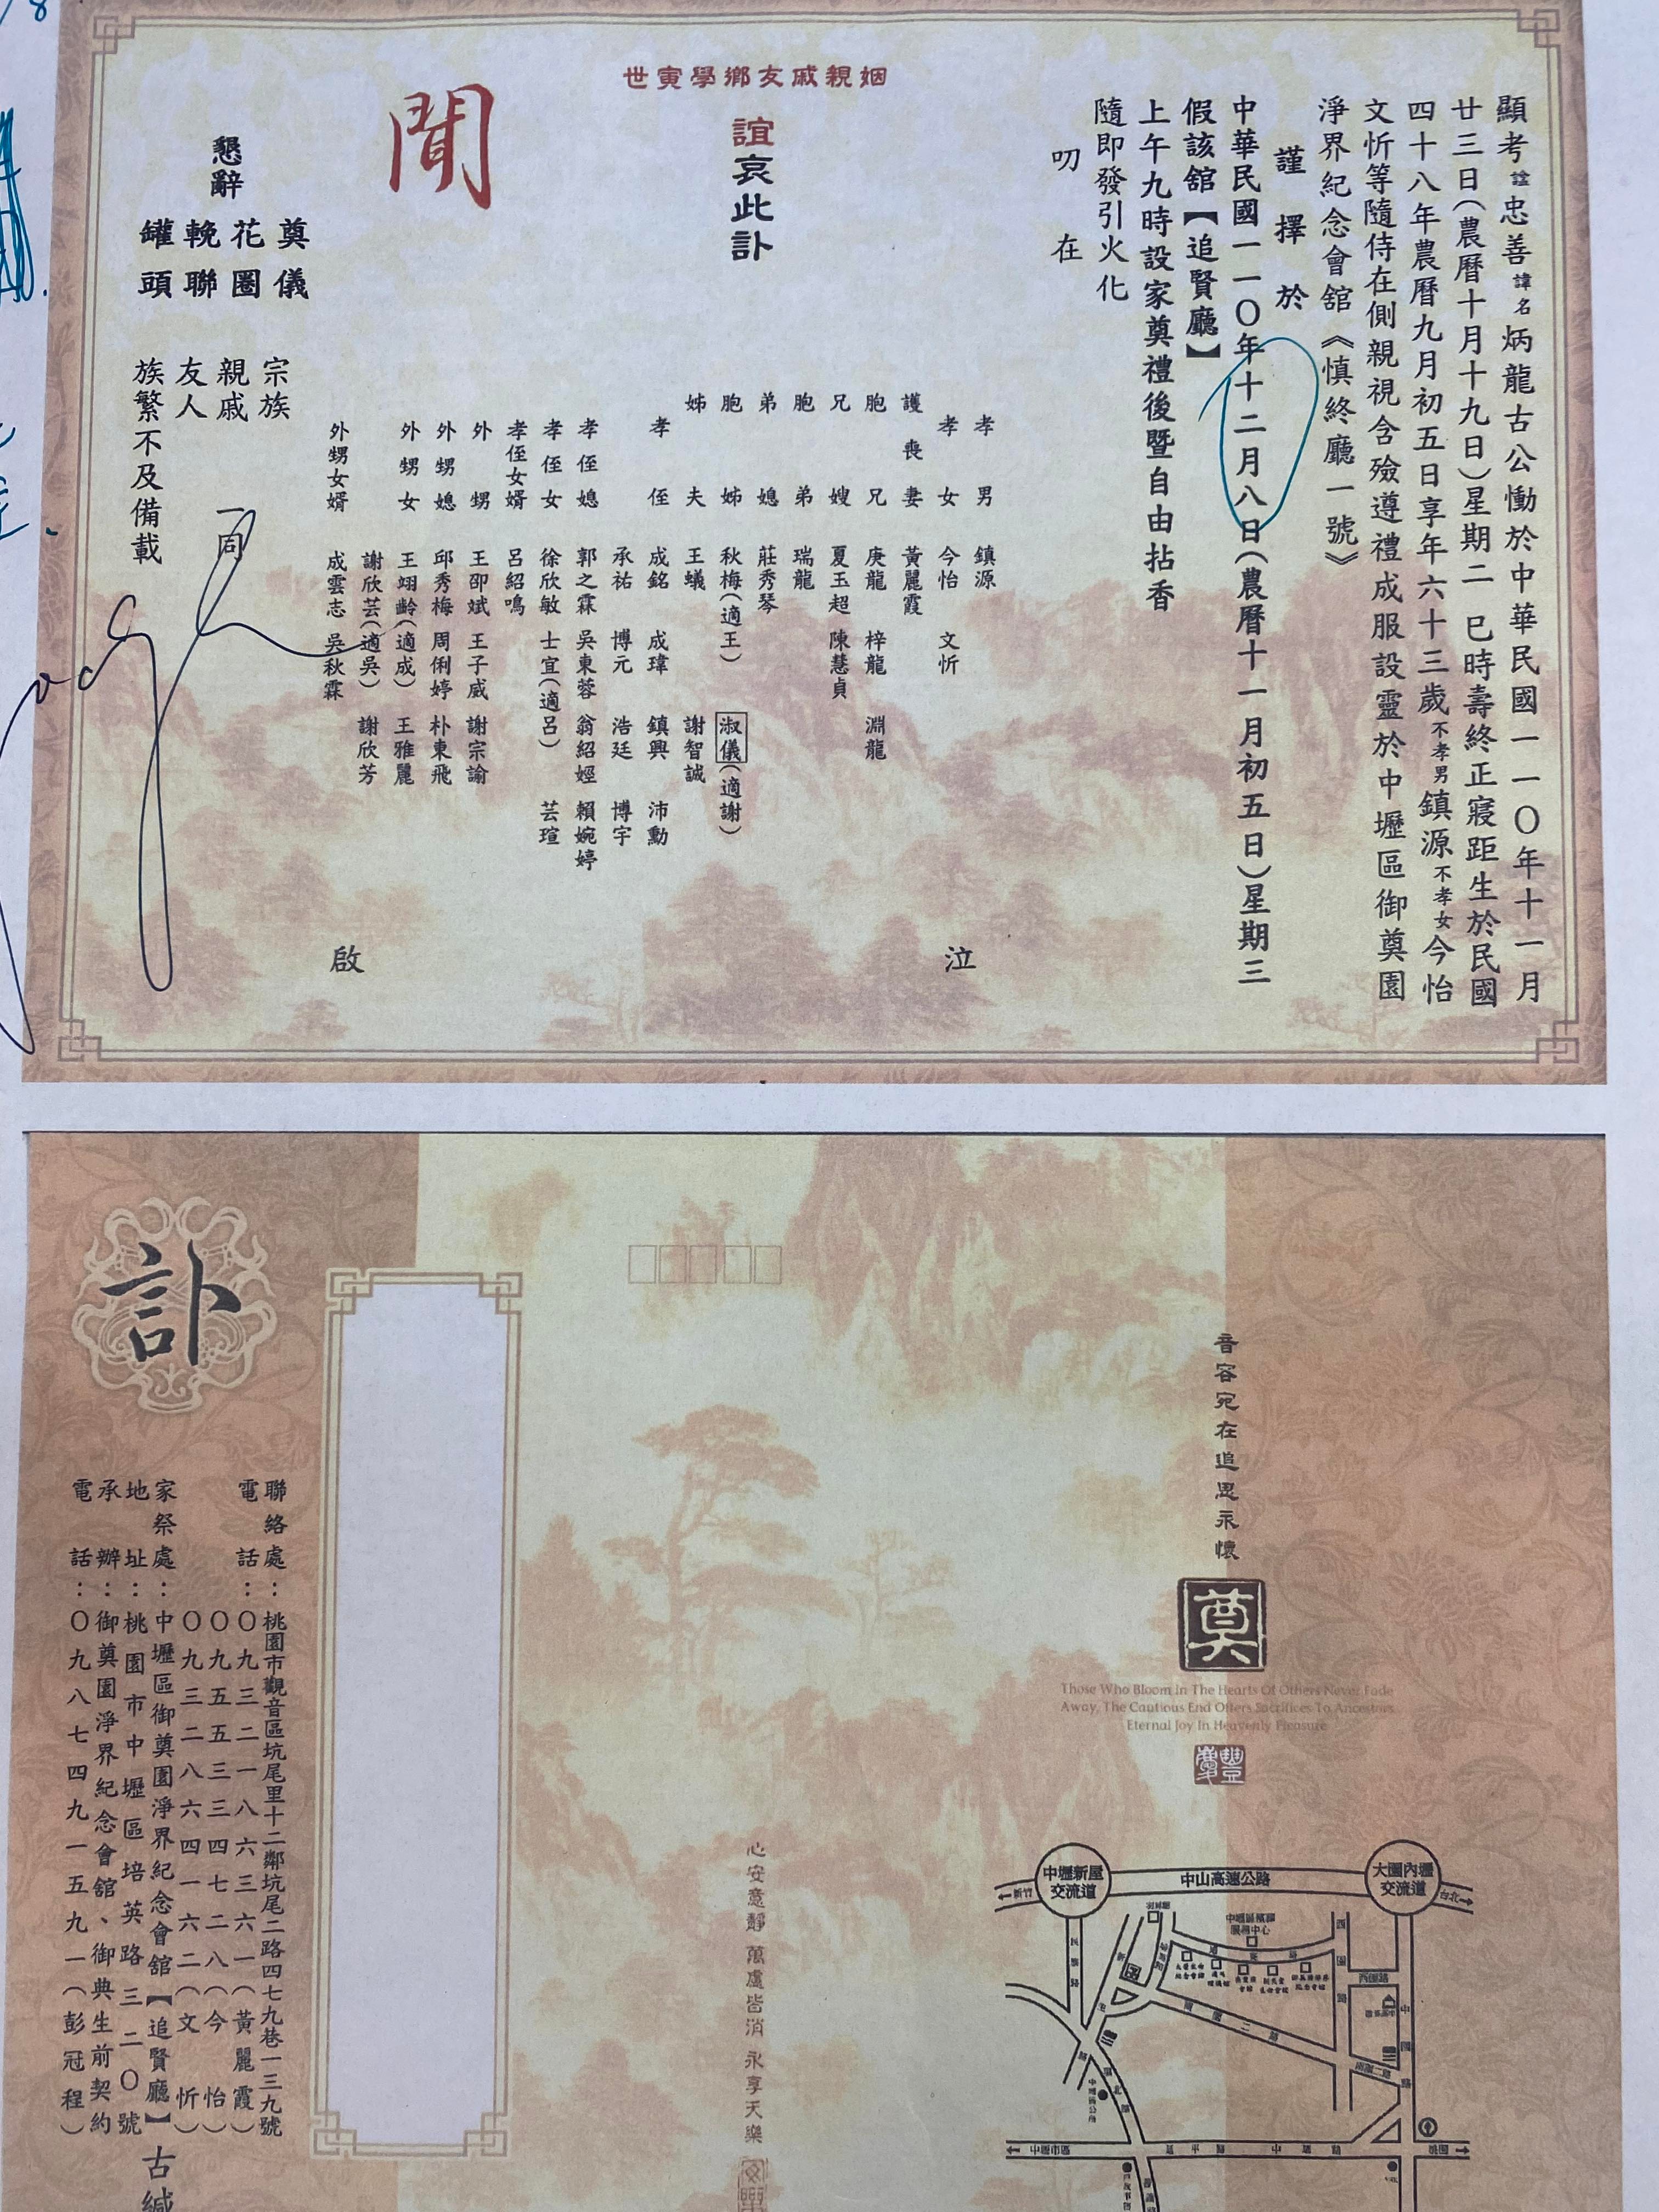 顯考諡忠善諱名炳龍古公慟於中華民國一一〇年十一月
廿三日(農曆十月十九日)星期二 巳時壽終正寢距生於民國
四十八年農曆九月初五日享年六十三歲不孝男鎮源不孝女今怡
文忻等隨侍在側親視含殮遵禮成服設靈於中壢區御奠園
淨界紀念會舘《慎終廳一號》
謹擇於
中華民國一一〇年十二月八日(農曆十一月初五日)星期三
假該舘【追賢廳】
上午九時設家奠禮後暨自由拈香
隨即發引火化
叨在
世寅學鄉友戚親姻
誼哀此訃
聞
孝男 鎮源
孝女 今怡 文忻
護喪妻 黃麗霞
胞兄 庚龍 梓龍 淵龍
兄嫂 夏玉超 陳慧貞
胞弟 瑞龍
弟媳 莊秀琴
胞姊 秋梅(適王) 淑儀(適謝)
姊夫 王蟻 謝智誠
孝侄 成銘 成瑋 鎮興 沛勳
承祐 博元 浩廷 博宇
孝侄媳 郭之霖 吳東蓉 翁紹婭 賴婉婷
孝侄女 徐欣敏 士宜(適呂) 芸瑄
孝侄女婿 呂紹鳴
外甥 王卲斌 王子威 謝宗諭
外甥媳 邱秀梅 周俐婷 朴東飛
外甥女 王翊齡(適成) 王雅麗
謝欣芸(適吳) 謝欣芳
外甥女婿 成雲志 吳秋霖
泣
啟
宗族
親戚 一同
友人
族繁不及備載
懇辭
奠儀
花圈
輓聯
罐頭
訃
聯絡處:桃園市觀音區坑尾里十二鄰坑尾二路四七九巷一三九號
電話:〇九三二一八六三六一(黃麗霞)
〇九五五三三四七二八(今怡)
〇九三二八六四一六二(文忻)
家祭處:中壢區御奠園淨界紀念會舘【追賢廳】
地址:桃園市中壢區培英路三二〇號
承辦:御奠園淨界紀念會舘、御典生前契約
電話:〇九八七四九一五九一(彭冠程)
古緘
音容宛在追思永懷
奠
Those Who Bloom In The Hearts Of Others Never Fade
Away, The Cautious End Offers Sacrifices To Ancestors
Eternal Joy In Heavenly Pleasure
豐慶
心安意靜 萬慮皆消 永享天樂
中壢新屋交流道
中山高速公路
大園內壢交流道
新竹
台北